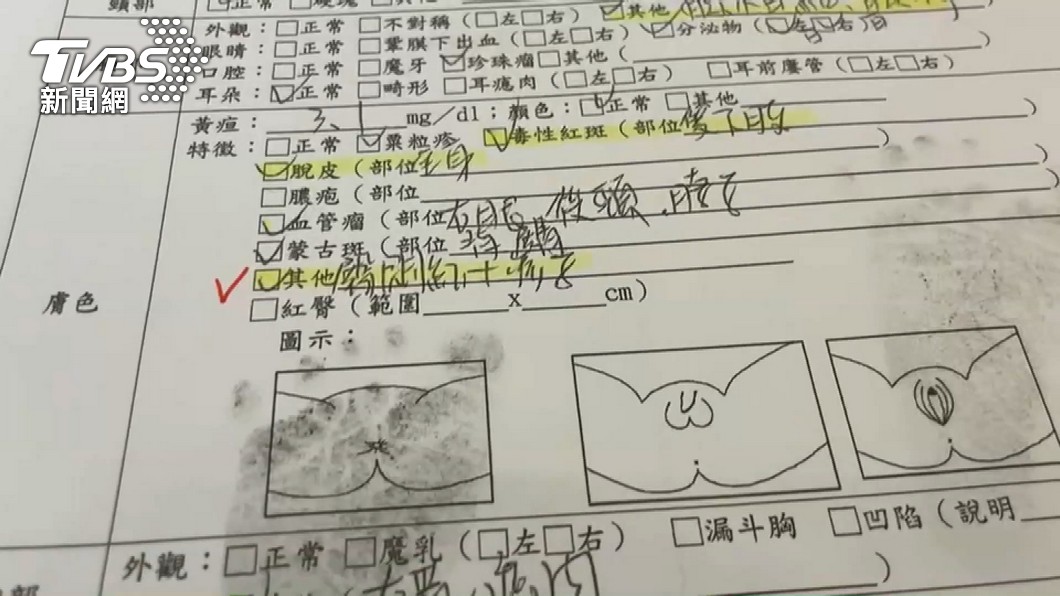 頸部 正常 硬塊 其他
外觀：□正常 □不對稱（□左□右） ☑其他
眼睛：□正常 □鞏膜下出血（□左□右） ☑分泌物（☑左□右）
口腔：□正常 □魔牙 ☑珍珠瘤□其他（ ）
耳朵：☑正常 □畸形 □耳瘜肉（□左□右） □耳前廔管（□左□右）
黃疸： 3.1 mg/dl；顏色：☑正常 □其他
特徵：□正常 ☑粟粒疹 ☑毒性紅斑（部位 ）
☑脫皮（部位全身 ）
□膿疱（部位 ）
☑血管瘤（部位 ）
☑蒙古斑（部位 ）
☑其他
□紅臀（範圍 x cm）
膚色
圖示：
外觀：□正常 □魔乳（□左□右） □漏斗胸 □凹陷（說明
）
TVBS
新聞網